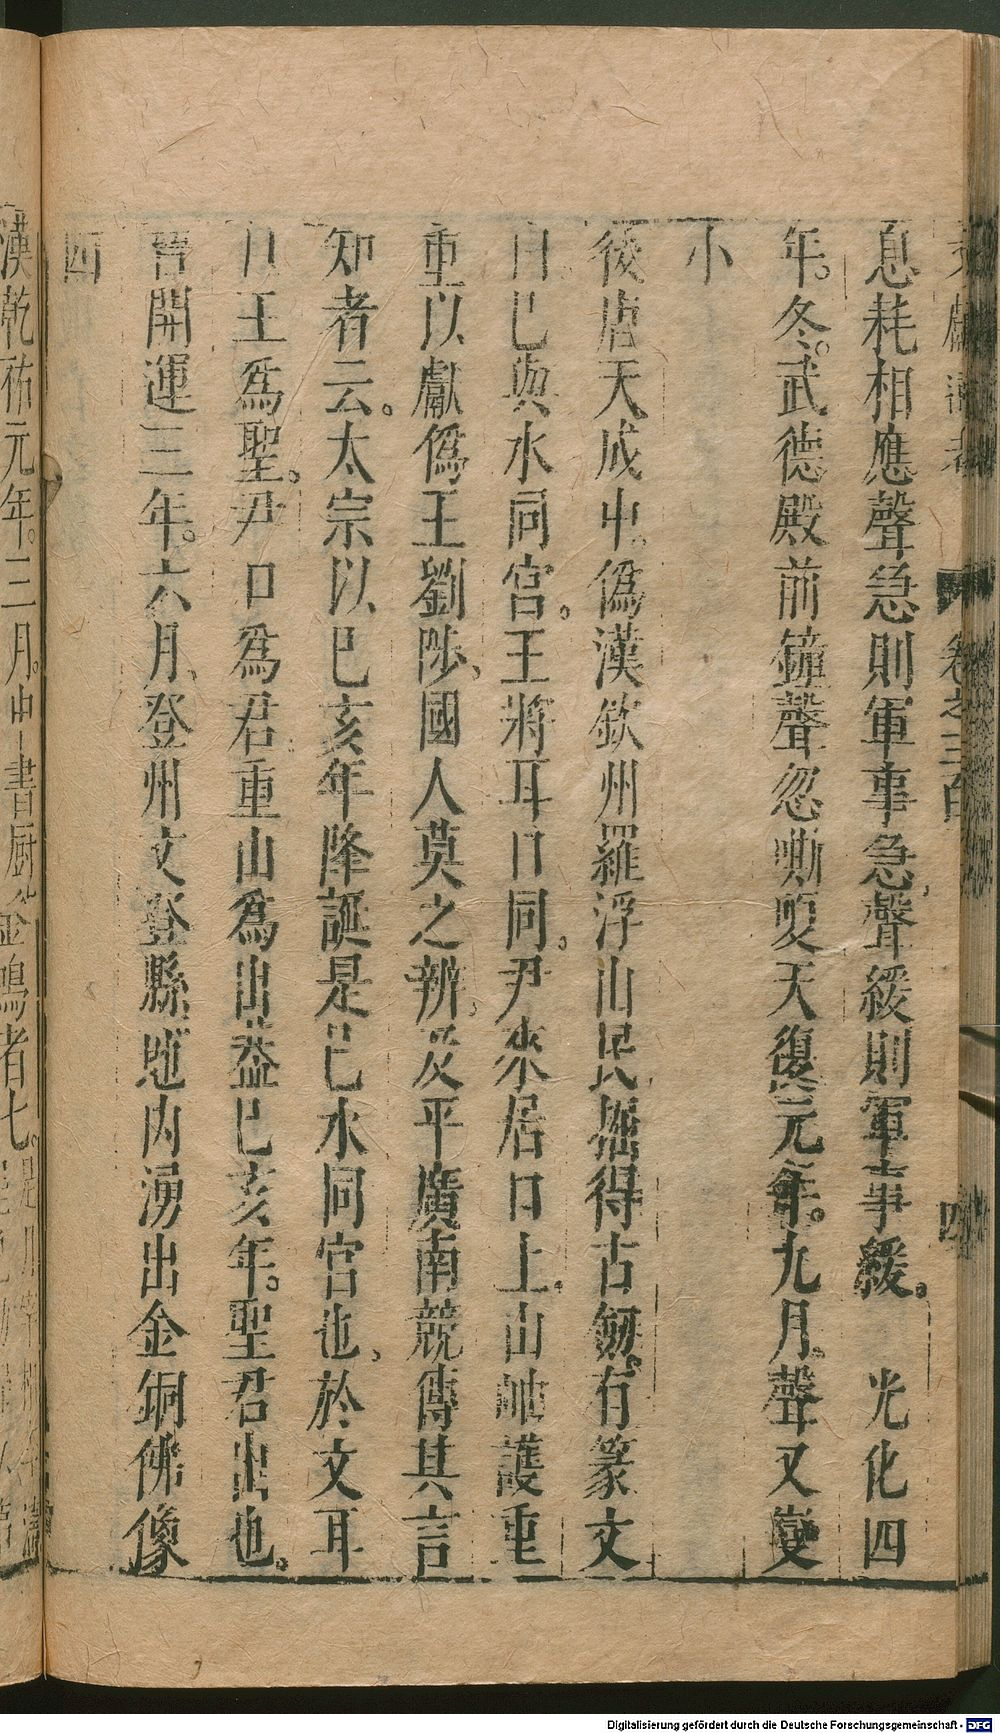 文獻通考 卷之三百 四
息耗相應聲急則軍事急聲緩則軍事緩。 光化四
年。冬。武德殿前鐘聲忽嘶嗄天復元年。九月。聲又變
小
後唐天成中、僞漢欽州羅浮山民掘得古劒。有篆文
曰巳與水同宮。王將耳口同。尹來居口上。山岫護重
重以獻僞王劉陟、國人莫之辨、及平廣南競傳其言
知者云。太宗以巳亥年降誕是巳水同宮也、於文耳
口王爲聖。尹口爲君重山爲出葢巳亥年。聖君出也。
晉開運三年。六月、登州文登縣地內湧出金銅佛像
四
漢乾祐元年。三月。中書厨 金鳴者七。
Digitalisierung gefördert durch die Deutsche Forschungsgemeinschaft - DFG